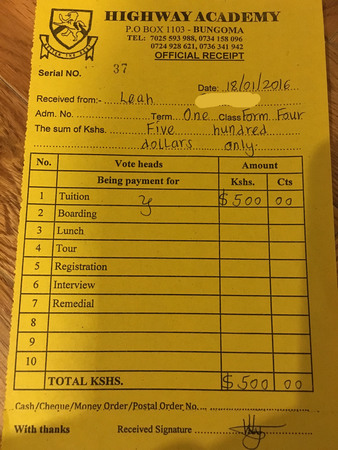 HIGHWAY ACADEMY
P.O BOX 1103 - BUNGOMA
TEL: 7025 593 988, 0734 158 096
0724 928 621, 0736 341 942
OFFICIAL RECEIPT
Serial NO. 37
Date: 18/01/2016
Received from:- Leah
Adm. No. Term One Class Form Four
The sum of Kshs. Five hundred
dollars only.
No. Vote heads Amount
Being payment for Kshs. Cts
1 Tuition $500 00
2 Boarding
3 Lunch
4 Tour
5 Registration
6 Interview
7 Remedial
8
9
10
TOTAL KSHS. $500 00
Cash/Cheque/Money Order/Postal Order No.
With thanks Received Signature